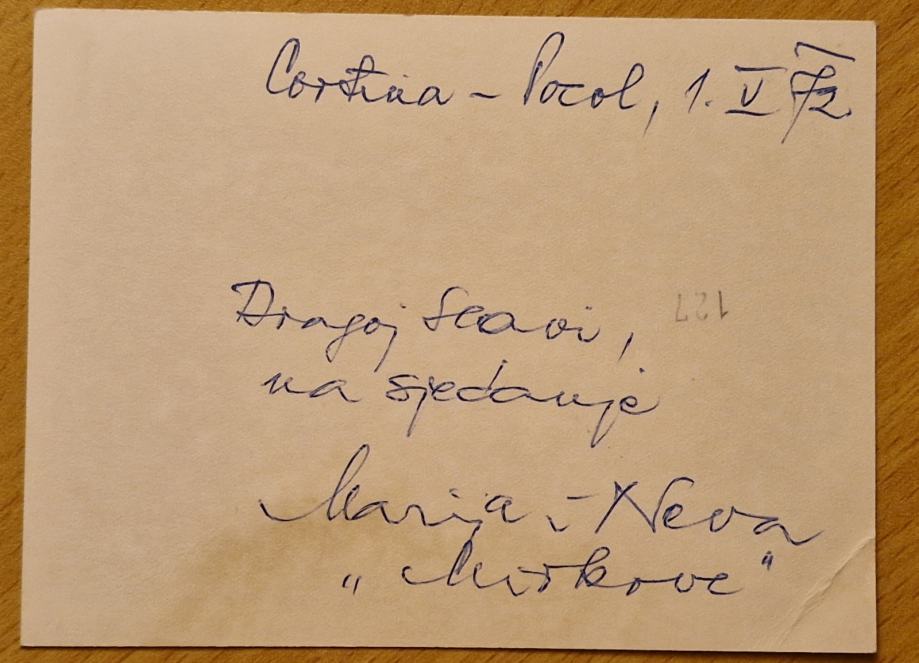 Cortina - Pocol, 1. V 72
Dragoj Slavi,
127
na sjećanje
Marija i Neva
„Mirkove"